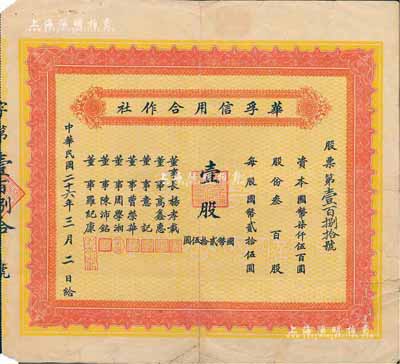 華孚信用合作社
股票第壹百捌拾號
資本國幣柒仟伍百圓
股份叁百股
每股國幣貳拾伍圓
壹股
國幣貳拾伍圓
董事長楊孝載
董事高鑫惠
董事意記
董事曹榮華
董事周學湘
董事陳沛銘
董事羅紀康
中華民國二十六年三月二日給
字第壹百捌拾號